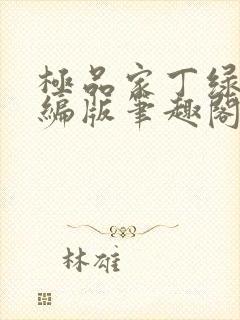 极品家丁绿
编版笔趣阁
林雄